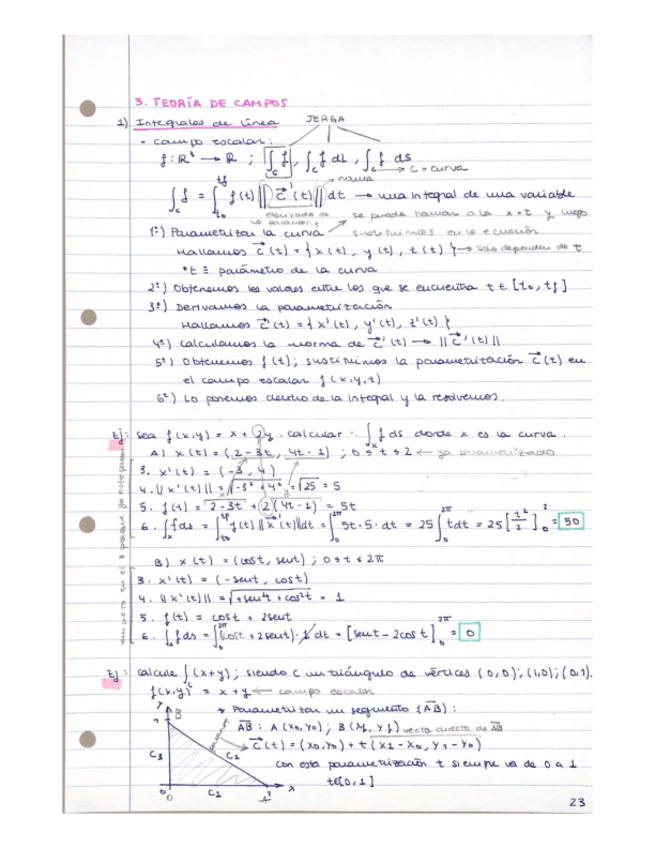 3. TEORÍA DE CAMPOS
1) Integrales de línea JERGA
- campo escalar:
f: ℝ³ → ℝ ; ∫_c f, ∫_c f dL, ∫_c f ds
→ C = curva
norma
∫_c f = ∫_{t0}^{tf} f(t) ||c⃗'(t)|| dt → una integral de una variable
derivada de la paramet.
se puede llamar a la x=t y luego
sustituimos en la ecuación
1º) Parametrizar la curva
Hallamos c⃗(t) = { x(t), y(t), z(t) } → solo dependen de t
*t ≡ parámetro de la curva
2º) Obtenemos los valores entre los que se encuentra t ∈ [t0, tf]
3º) Derivamos la parametrización
Hallamos c⃗'(t) = { x'(t), y'(t), z'(t) }
4º) Calculamos la norma de c⃗'(t) → ||c⃗'(t)||
5º) Obtenemos f(t); sustituimos la parametrización c⃗(t) en
el campo escalar f(x,y,z)
6º) Lo ponemos dentro de la integral y la resolvemos.
Ej: sea f(x,y) = x + 2y. calcular ∫_x f ds donde x es la curva.
A) x(t) = (2-3t, 4t-1) ; 0 ≤ t ≤ 2 ← ya parametrizado
3. x'(t) = (-3, 4)
4. ||x'(t)|| = √(-3² + 4²) = √25 = 5
5. f(t) = 2-3t + 2(4t-1) = 5t
6. ∫_x f ds = ∫_{t0}^{tf} f(t) ||x'(t)|| dt = ∫_0^{2π} 5t·5·dt = 25 ∫_0^{2π} t dt = 25 [t²/2]_0^2 = 50
B) x(t) = (cost, sent) ; 0 ≤ t ≤ 2π
3. x'(t) = (-sent, cost)
4. ||x'(t)|| = √(+sen²t + cos²t) = 1
5. f(t) = cost + 2sent
6. ∫_x f ds = ∫_0^{2π} (cost + 2sent)·1 dt = [sent - 2cost]_0^{2π} = 0
Ej: calcule ∫_c (x+y); siendo C un triángulo de vértices (0,0); (1,0); (0,1).
f(x,y) = x+y ← campo escalar
* Parametrizar un segmento {AB}:
AB: A(x0, y0); B(x1, y1) vector director de AB
c⃗(t) = (x0, y0) + t(x1-x0, y1-y0)
con esta parametrización t siempre va de 0 a 1
t∈[0,1]
Y
1
B
C3
C2
0
O
C1
A
1
X
23